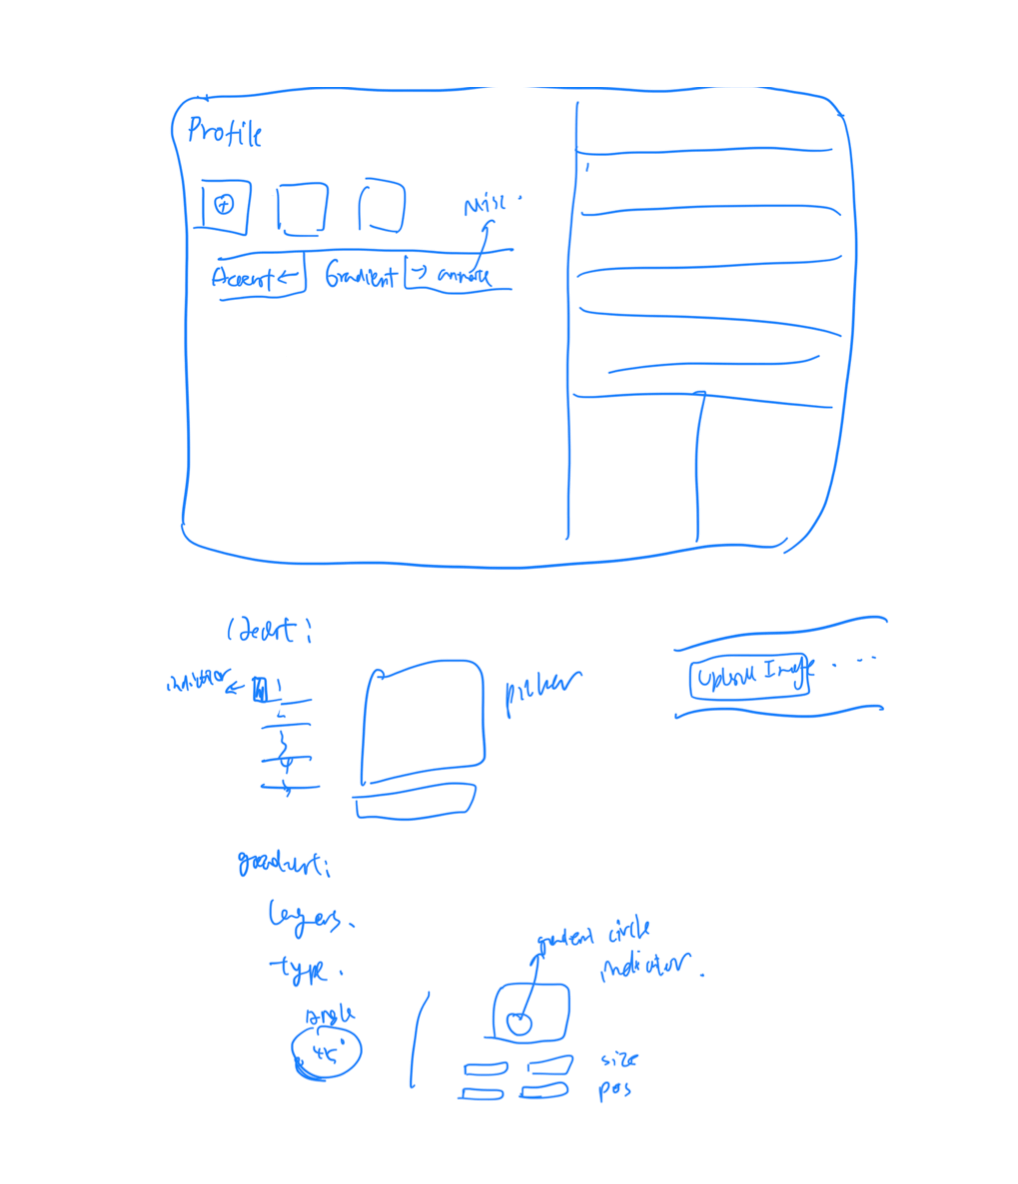 Profile
Misc.
Accent ← Gradient →
indicator ←
1
2
3
4
5
picker
Upload Image ...
gradient:
layers.
type.
angle
45°
gradient circle
indicator.
size
pos